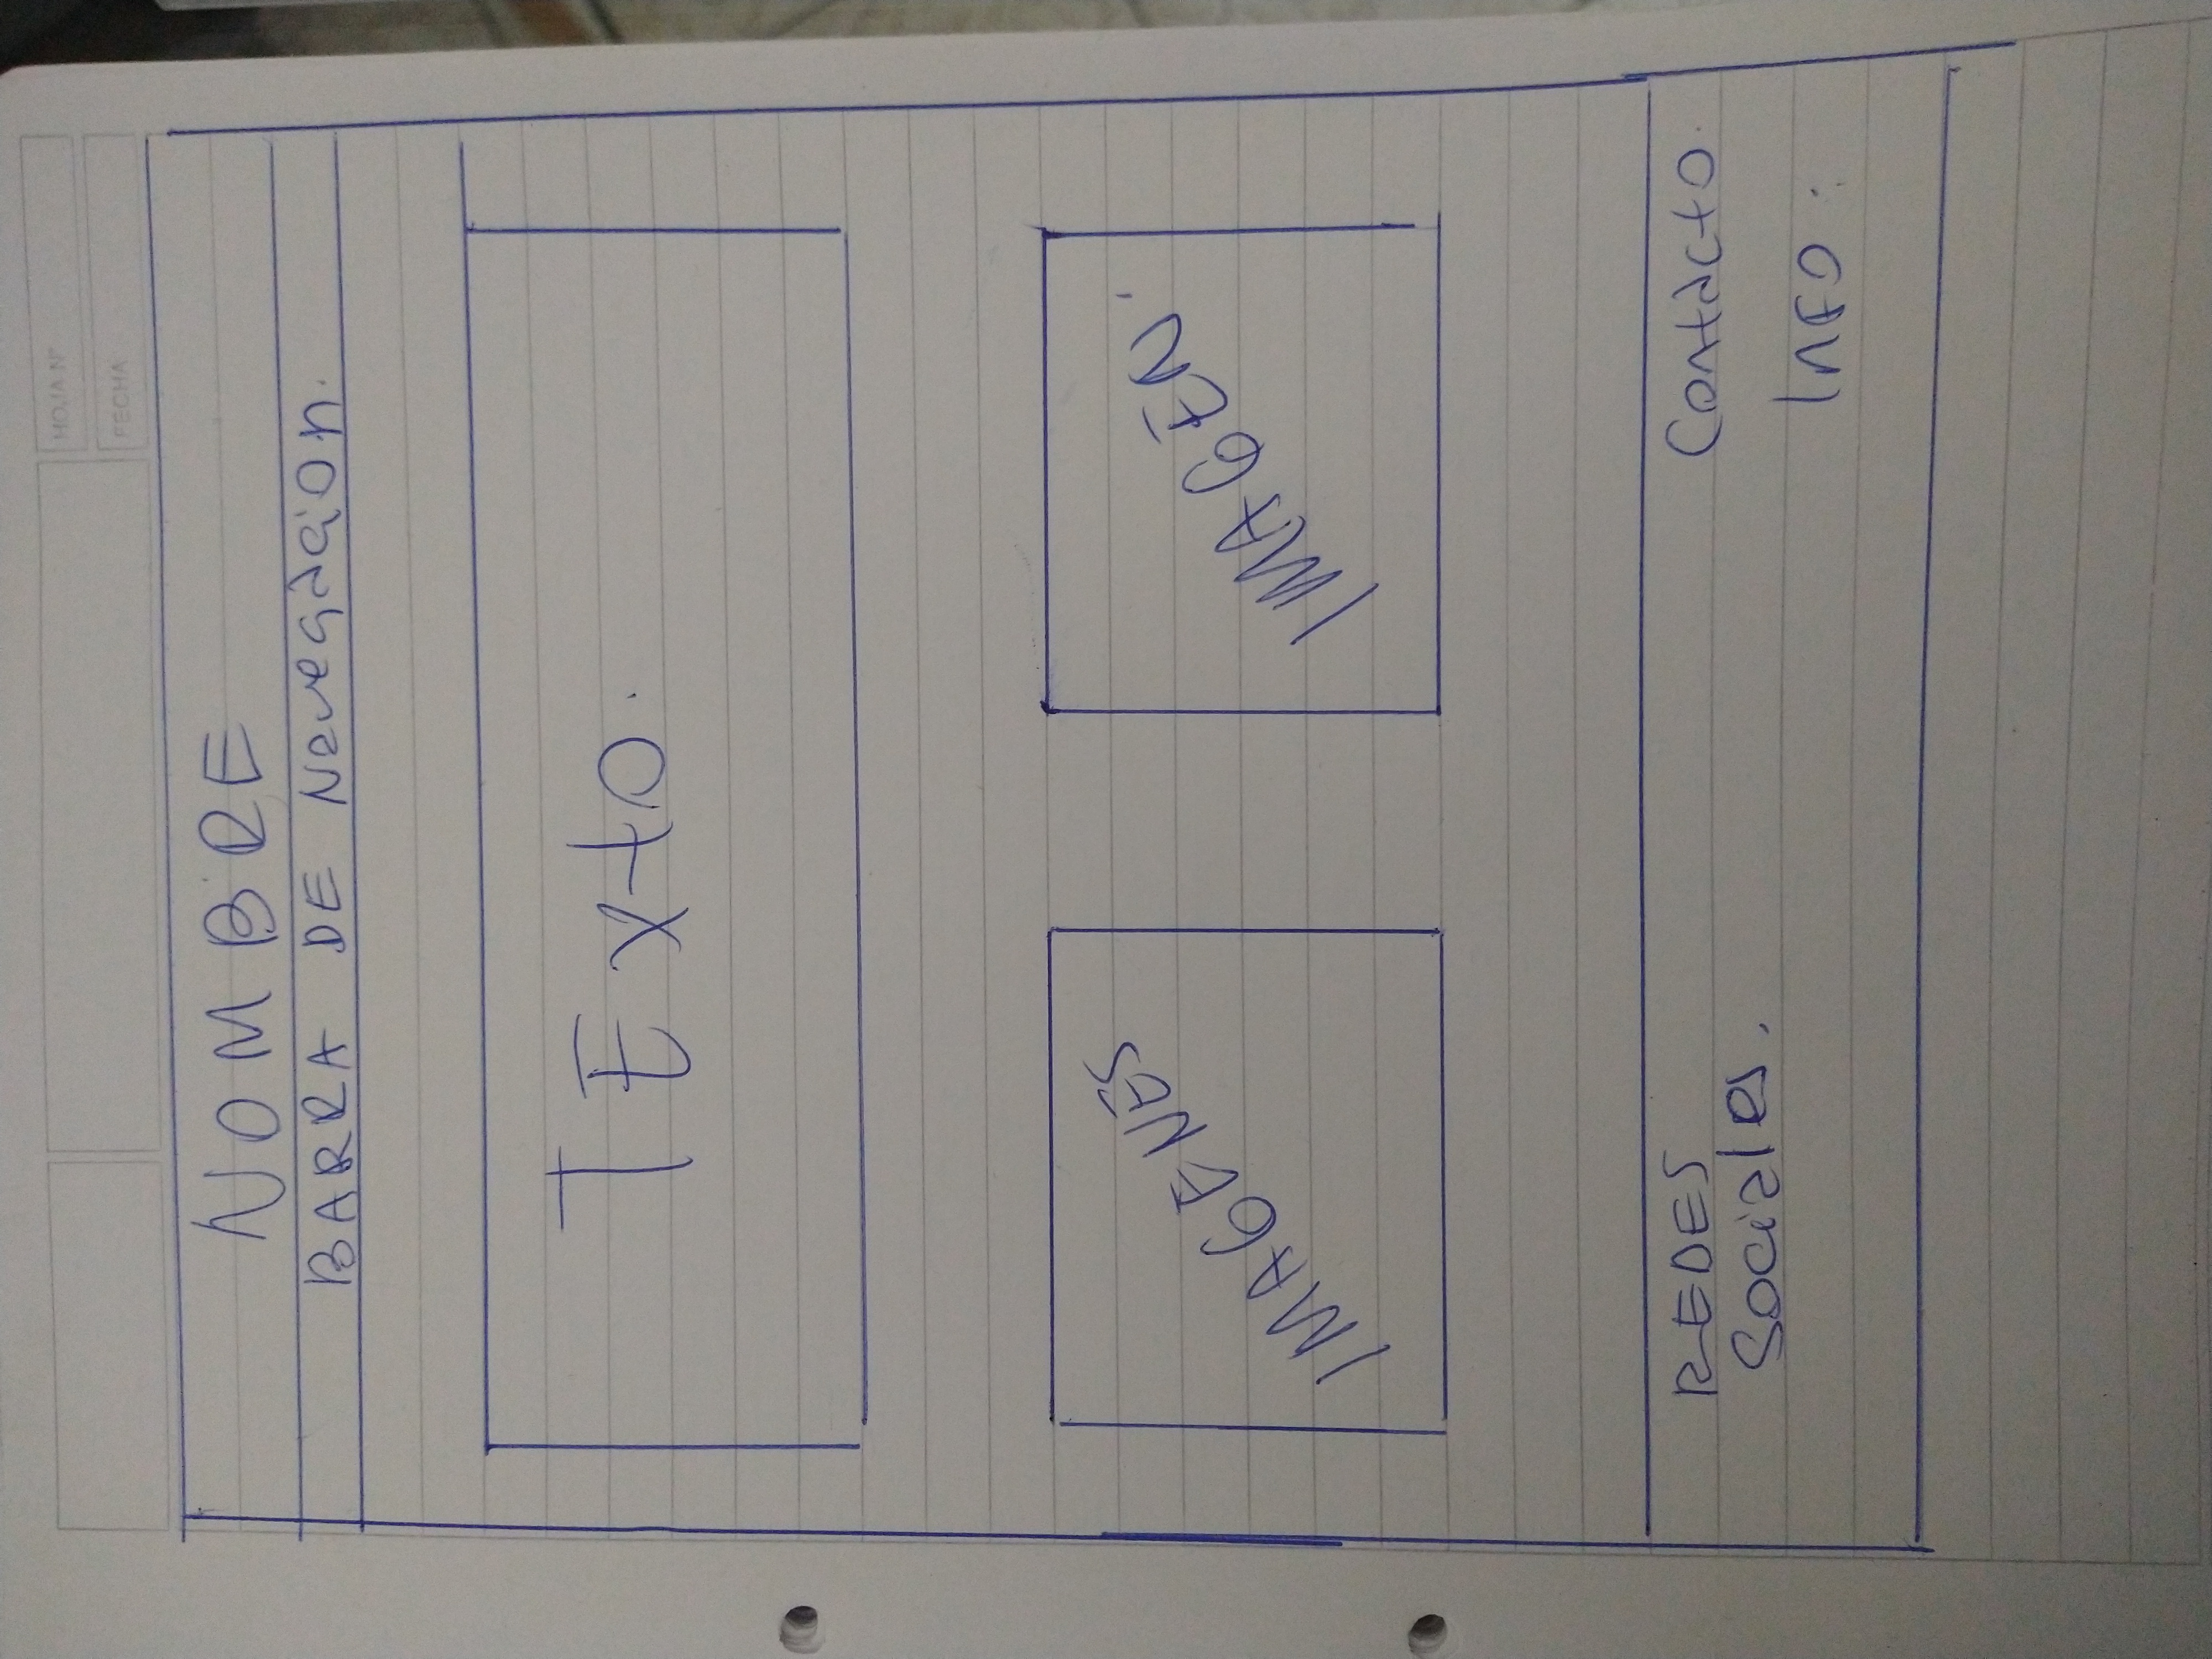 HOJA N°
FECHA
NOMBRE
BARRA DE Navegacion.
TExto.
IMAGENES
IMAGEN.
REDES
Sociales.
Contacto.
INFO: